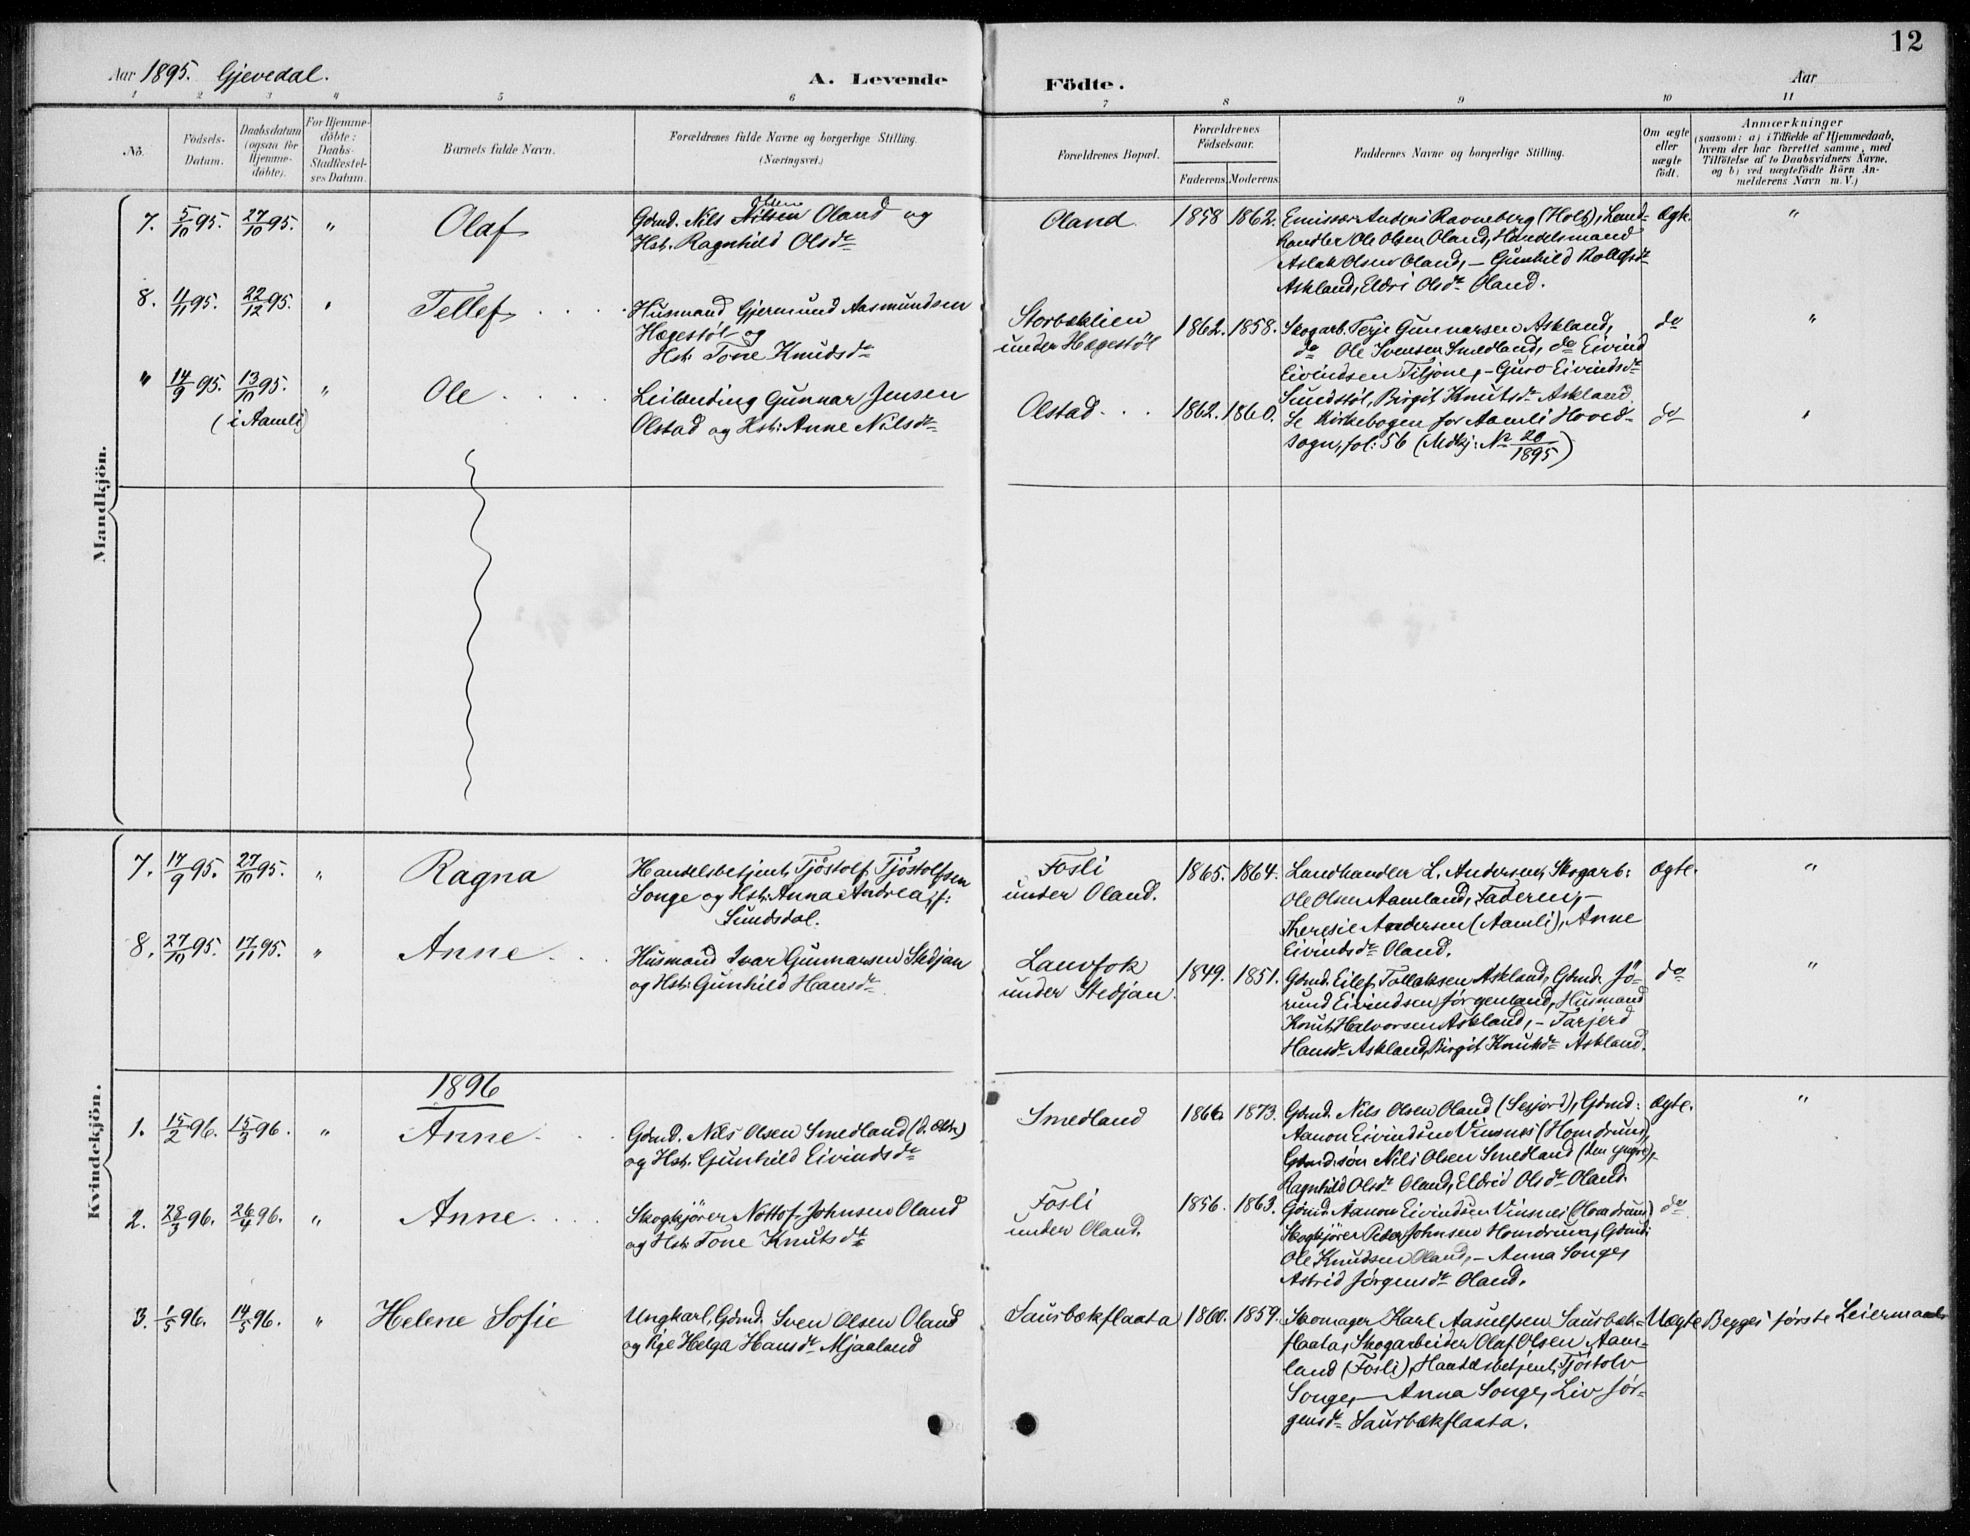 12
Aar 1895. Gjevedal.
A. Levende
Födte.
Aar
1 2 3 4 5 6 7 8 9 10 11
No.
Födsels-Datum.
Daabsdatum (ogsaa for Hjemme-döbte).
For Hjemme-döbte: Daabs-Stadfæstel-ses Datum.
Barnets fulde Navn.
Forældrenes fulde Navne og borgerlige Stilling. (Næringsvei.)
Forældrenes Bopæl.
Forældrenes Födselsaar.
Faderens. Moderens.
Faddernes Navne og borgerlige Stilling.
Om ægte eller uægte födt.
Anmærkninger
(saasom: a) i Tilfælde af Hjemmedaab, hvem der har forrettet samme, med Tilföielse af to Daabsvidners Navne, og b) ved uægtefödte Börn An-melderens Navn m. V.)
Mandkjön.
7. 5/10 95. 27/10 95. " Olaf
Gdmd. Nils Nilsen Olsen Oland og
Hst. Ragnhild Olsdr
Oland 1858 1862.
Emissær Anders Ravneberg (Holt), Land-
handler Ole Olsen Oland, Handelsmand
Aslak Olsen Oland, – Gunhild Rollefsdr
Askland, Eldri Olsdr Oland.
Ægte "
8. 4/11 95. 22/12 95. " Tellef
Husmand Gjermund Aasmundsen
Hægestöl og
Hst. Tone Knudsdr
Storbæklien
under Hægestöl
1862. 1858.
Skogarb. Terje Gunnarsen Askland,
do Ole Svensen Smedland, do Eivind
Eivindsen Tiltjone, – Guro Eivindsdr
Sundstöl, Birgit Knutsdr Askland.
do "
" 14/9 95. 13/10 95. " Ole
(i Aamli)
Leilænding Gunnar Jensen
Olstad og Hst. Anne Nilsdr
Olstad 1862. 1860.
Se Kirkebogen for Aamli Hoved-
sogn, fol: 56 (Mdkj: No 20/1895)
do "
Kvindekjön.
7. 17/9 95. 27/10 95. " Ragna
Handelsbetjent Tjöstolf Tjöstolfsen
Songe og Hst. Anna Andrea, f:
Sundsdal.
Fosli
under Oland.
1865. 1864.
Landhandler L. Andersen, Skogarb:
Ole Olsen Aamland, Faderen, –
Theresie Andersen (Aamli), Anne
Eivindsdr Oland.
Ægte. "
8. 27/10 95. 17/11 95. " Anne
Husmand Ivar Gunnarsen Stedjan
og Hst. Gunhild Hansdr
Lauvfok
under Stedjan.
1849. 1851.
Gdmd. Eilef Tollaksen Askland, Gdmd. Jö-
rund Eivindsen Jörgenland, Husmand
Knut Halvorsen Askland, – Tarjerd
Hansdr Askland, Birgit Knutsdr Askland.
do "
1896
1. 15/2 96. 15/3 96. " Anne
Gdmd. Nils Olsen Smedland (d. ældre)
og Hst. Gunhild Eivindsdr
Smedland 1866. 1873.
Gdmd. Nils Olsen Oland (Sesjord), Gdmd:
Aanon Eivindsen Vinsnes (Homdrum),
Gdmdsön Nils Olsen Smedland (den yngre), –
Ragnhild Olsdr Oland, Eldrid Olsdr Oland.
Ægte. "
2. 28/3 96. 26/4 96. " Anne
Skogkjörer Nottof Johnsen Oland
og Hst. Tone Knutsdr
Fosli
under Oland.
1856. 1863.
Gdmd. Aanon Eivindsen Vinsnes (Homdrum)
Skogkjörer Peder Johnsen Homdrum, Gdmd:
Ole Knudsen Oland, – Anna Songe,
Astrid Jörgensdr Oland.
do
3. 1/5 96. 14/5 96. " Helene Sofie
Ungkarl, Gdmd. Sven Olsen Oland
og Pige Helga Hansdr Mjaaland
Saurbækflaata 1860. 1859.
Skomager Karl Aasulfsen Saurbæk-
flaata, Skogarbeider Olaf Olsen Aam-
land (Fosli), Handelsbetjent Tjöstolv
Songe, – Anna Songe, Liv Jör-
gensdr Saurbækflaata.
Uægte Begges förste Leiermaal